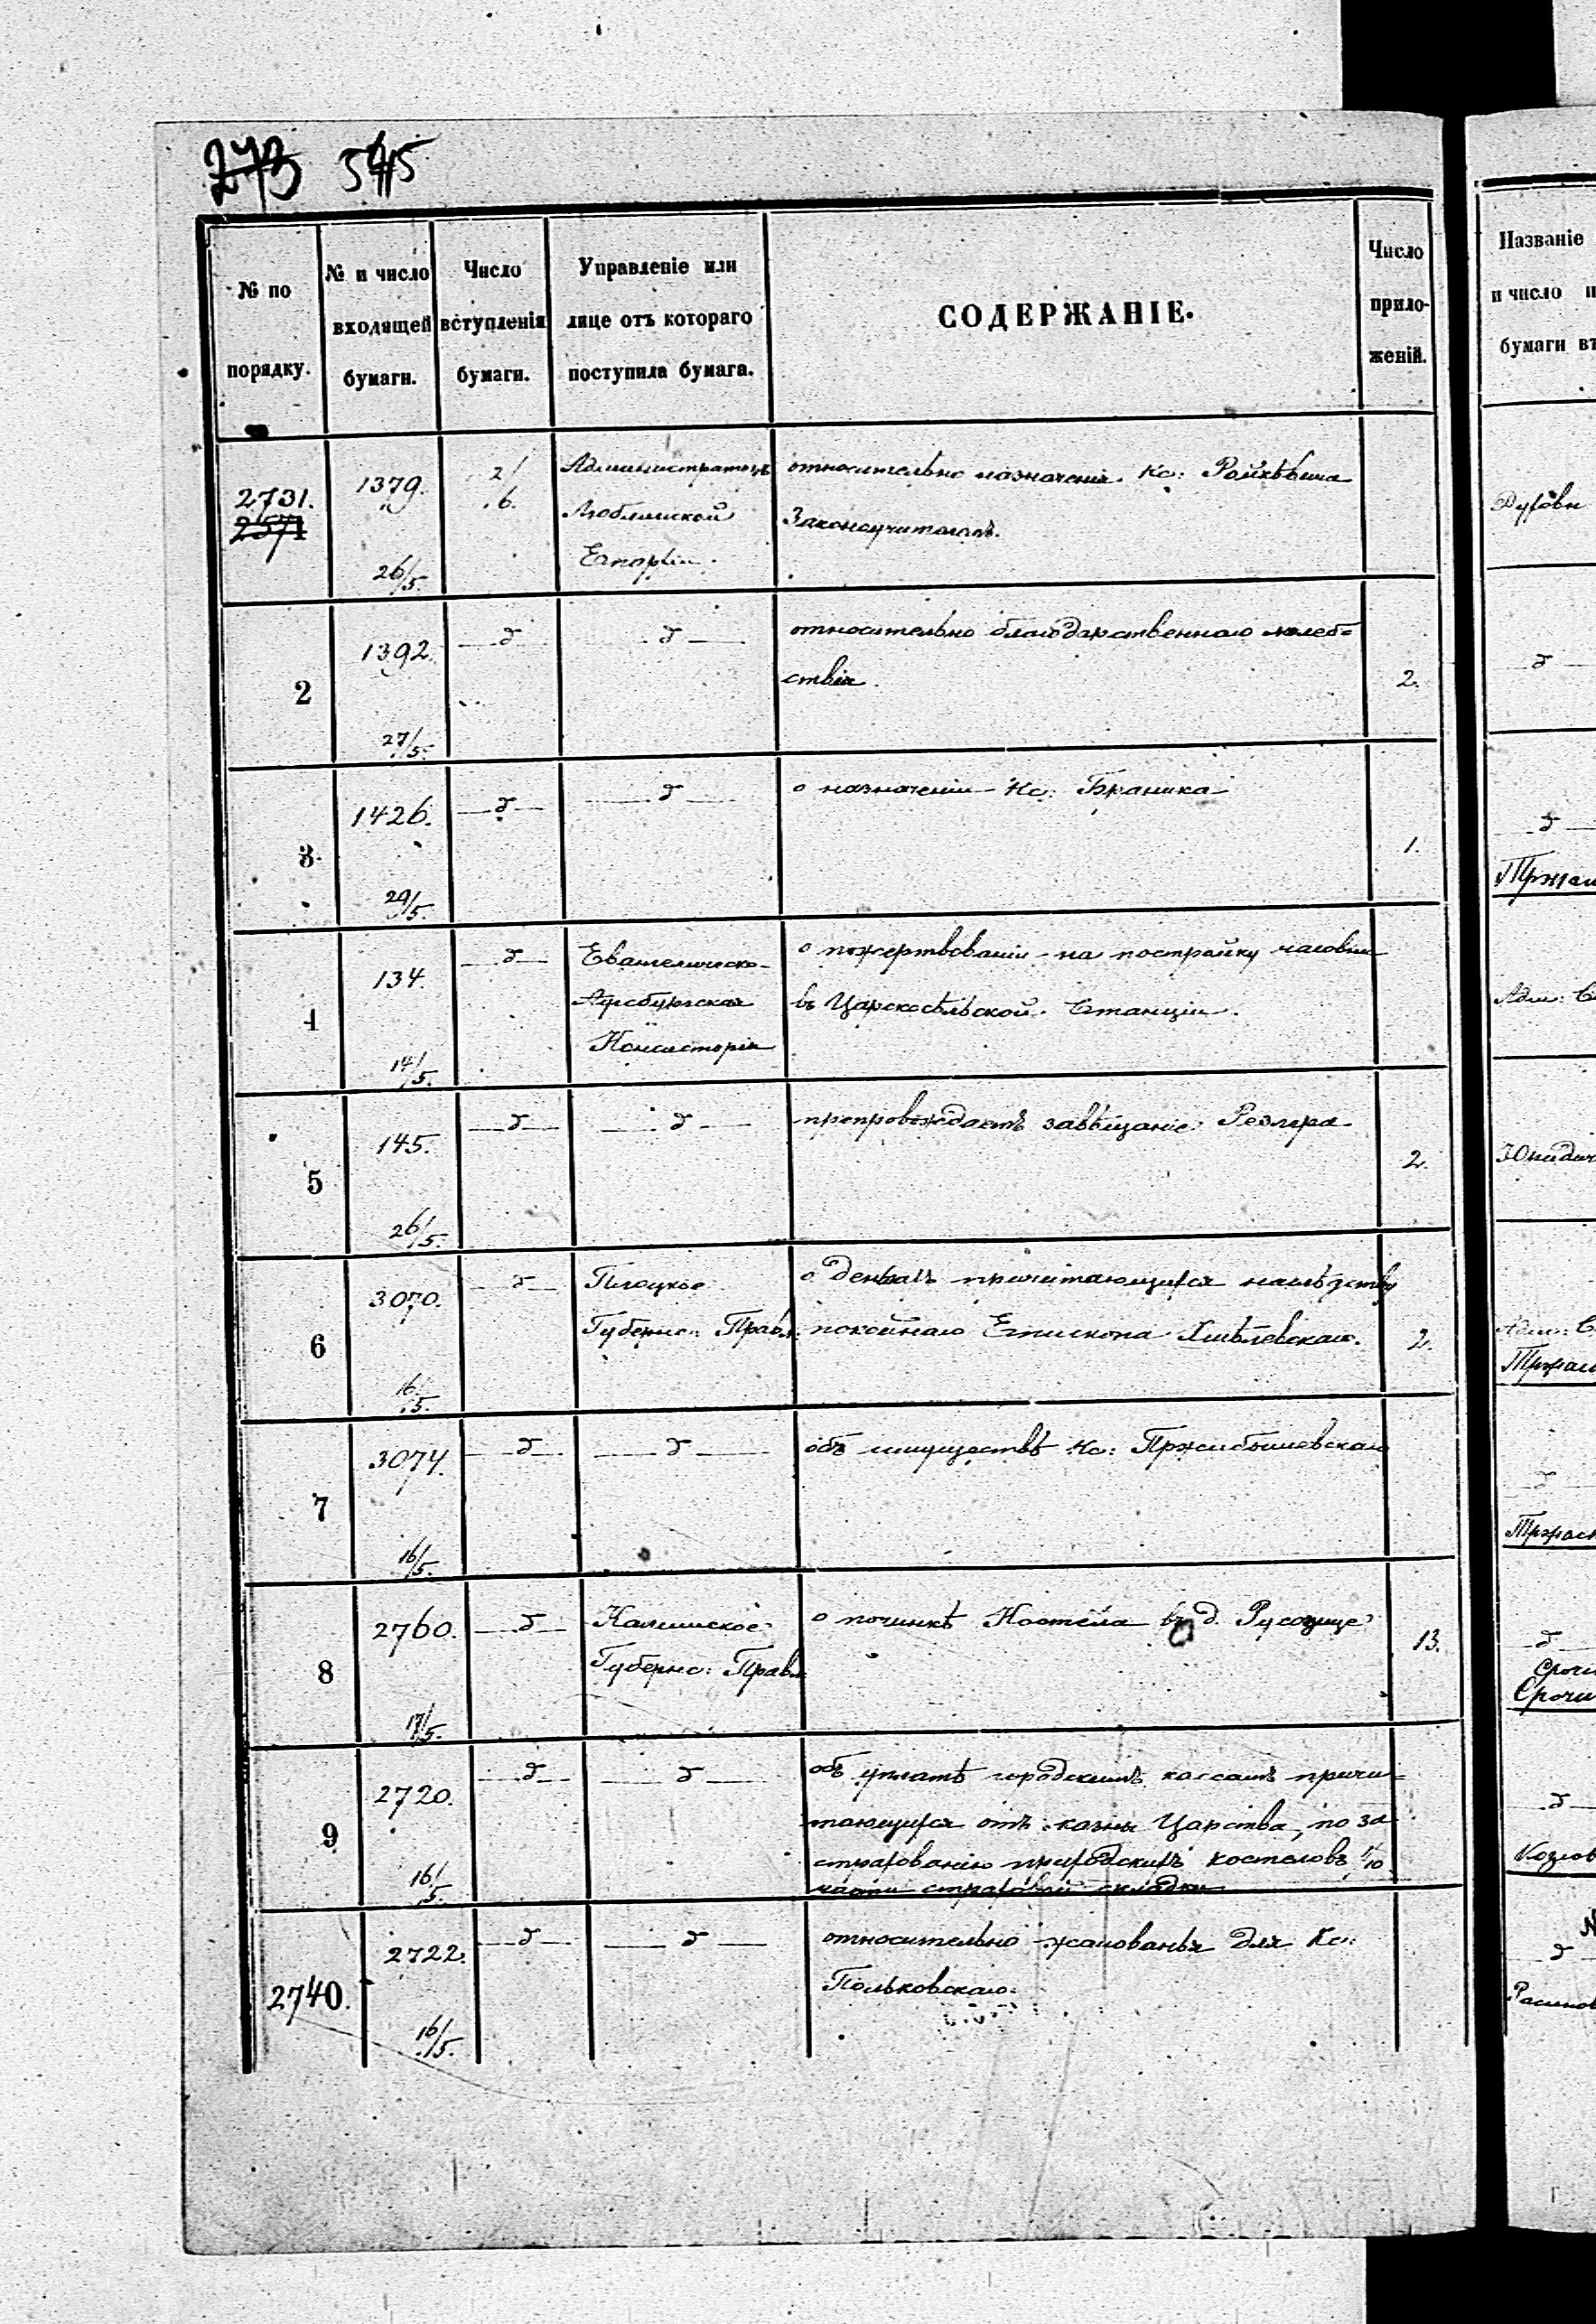 273 545
№ по порядку.
№ и число входящей бумаги.
Число вступленія бумаги.
Управленіе или лице отъ котораго поступила бумага.
СОДЕРЖАНІЕ.
Число приложеній.
Названіе
и число
бумаги
2731.
2571
1379.
26/5.
2/6.
Администраторъ
Люблинской
Епархіи.
относительно назначенія Кс:
Законоучителемъ.
2
1392.
27/5.
д
д
относительно благодарственнаго молеб=
ствія.
2.
д
3
1426.
29/5.
д
д
о назначеніи Кс: Браника
1.
д
4
134.
14/5.
д
Евангелическо-
Аугсбургская
Консисторія
о пожертвованіи на постройку часовни
въ Царскосельской Станціи.
5
145.
26/5.
д
д
препровождаетъ завѣщаніе
2.
6
3070.
16/5.
д
Плоцкое
Губернс: Правл:
о деньгахъ причитающихся наслѣдству
покойнаго Епископа Хмѣлевскаго.
2.
7
3074.
16/5.
д
д
объ имуществѣ Кс: Пржибышевскаго
д
8
2760.
17/5.
д
Калишское
Губернс: Правл:
о починкѣ Костёла въ д.
13.
д
9
2720.
16/5.
д
д
объ уплатѣ городскимъ кассамъ причи=
тающихся отъ казны Царства, по за
страхованію приходскихъ костеловъ 1/10
части страховой складки
д
2740.
2722.
16/5.
д
д
относительно жалованья для Кс:
Польковскаго.
д